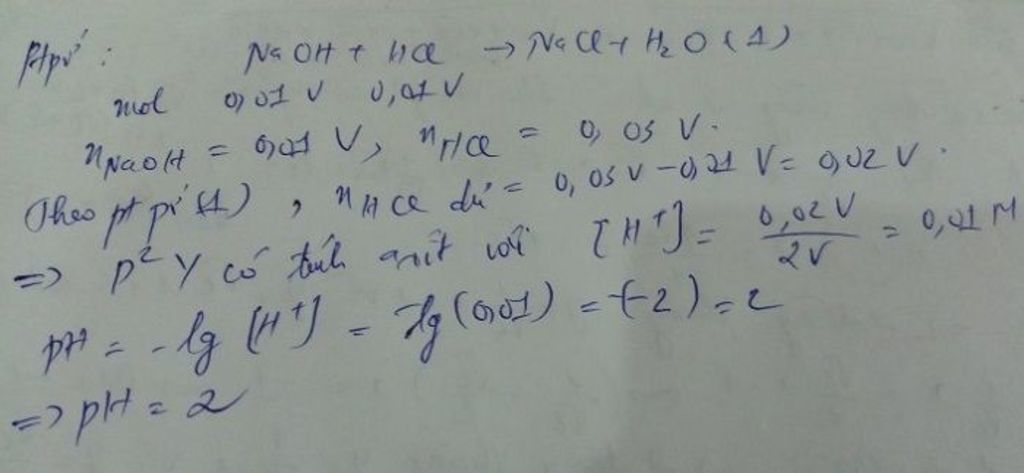 Ptpứ: NaOH + HCl → NaCl + H₂O (1)
mol 0,01 V 0,01 V
nNaOH = 0,01 V, nHCl = 0,03 V.
Theo pt pứ (1), nHCl dư = 0,03 V - 0,01 V = 0,02 V.
=> D² Y có tính axit với [H⁺] = 0,02V / 2V = 0,01 M
pH = -lg [H⁺] = -lg (0,01) = -(-2) = 2
=> pH = 2